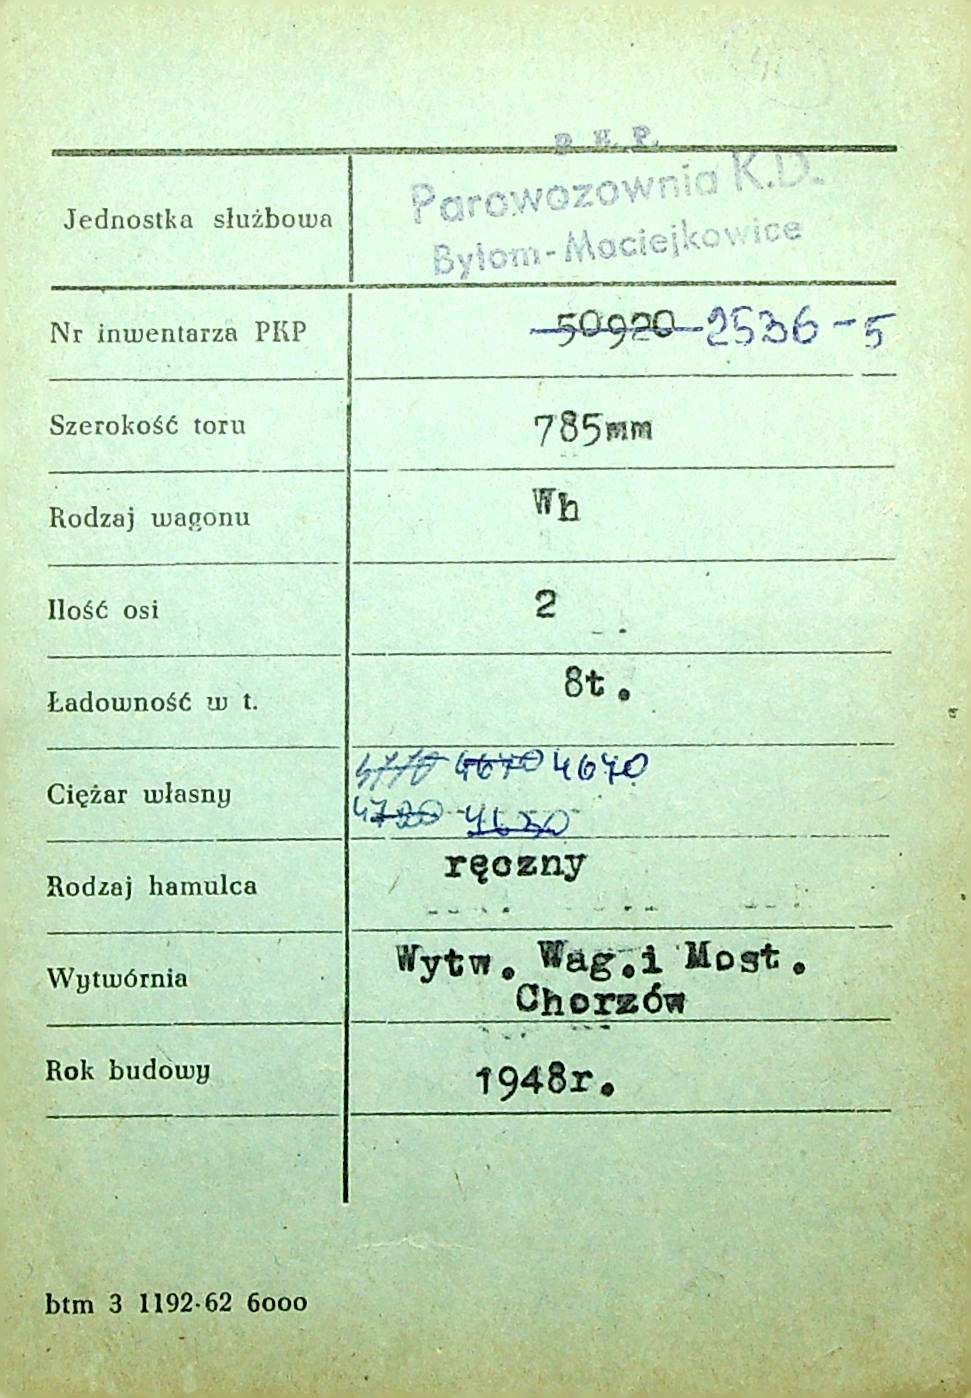 P. K. P.
Parowozownia K.D.
Jednostka służbowa
Bytom-Maciejkowice
Nr inwentarza PKP 50920 2536-5
Szerokość toru 785mm
Rodzaj wagonu Wh
Ilość osi 2
Ładowność w t. 8t.
4670 4640
Ciężar własny
4720 4630
Rodzaj hamulca ręczny
Wytwórnia Wytw. Wag.i Most.
Chorzów
Rok budowy 1948r.
btm 3 1192-62 6ooo